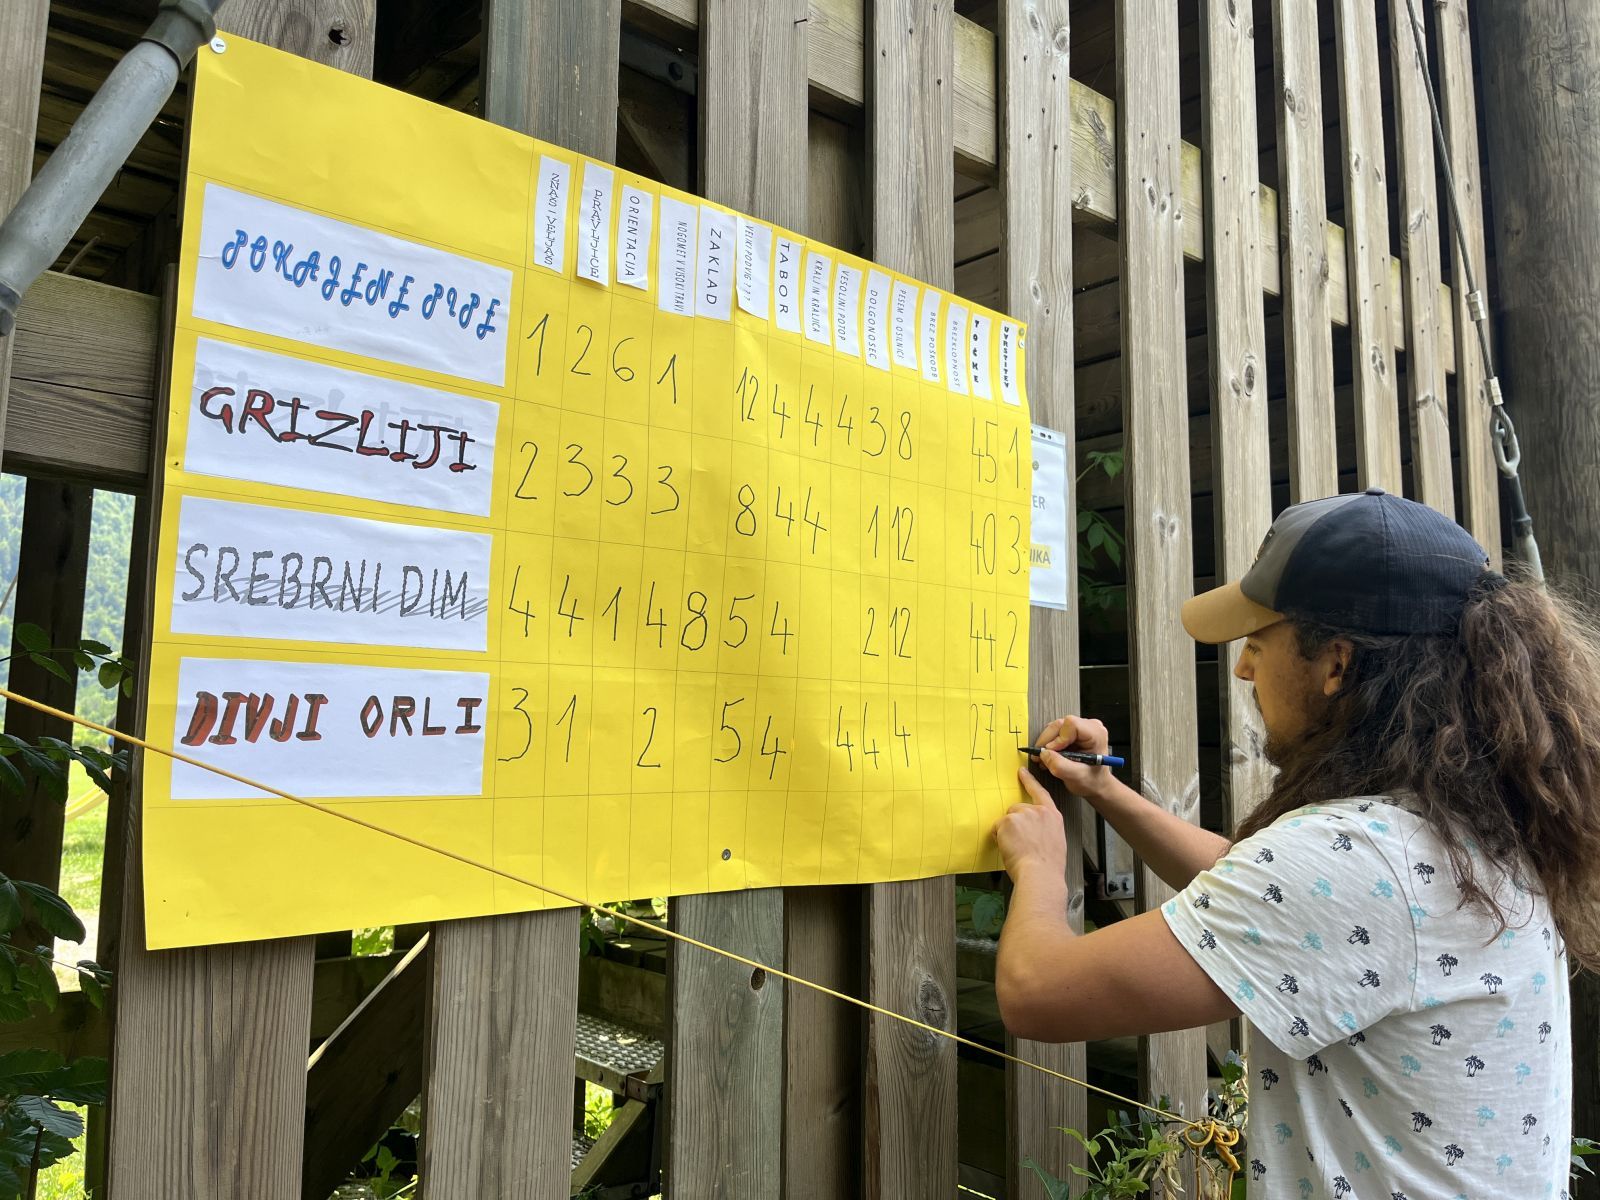 ZNAŠ I VEŠČAŠ
PRAVLJICE
ORIENTACIJA
NOGOMET V VISOKI TRAVI
ZAKLAD
VELIKI PODVIG ???
TABOR
KRALJ IN KRALJICA
VESOLJNI POTOP
DOLGONOSEC
PESEM O OSILNICI
BREZ POŠKODB
BREZKLOPNOST
TOČKE
UVRSTITEV
POKAJENE PIPE 1 2 6 1 12 4 4 4 3 8 45 1.
GRIZLIJI 2 3 3 3 8 4 4 1 12 40 3.
SREBRNI DIM 4 4 1 4 8 5 4 2 12 44 2.
DIVJI ORLI 3 1 2 5 4 4 4 4 27 4